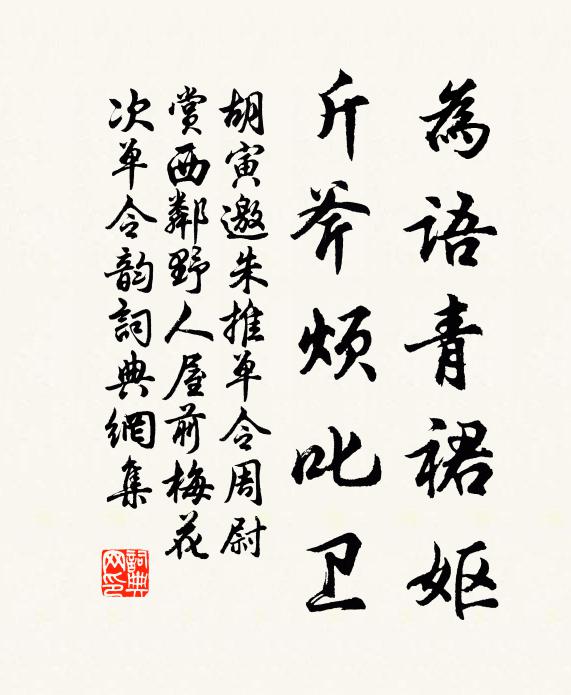 為語青裙妪
斤斧烦叱卫
胡寅邀朱推单令周尉
赏西鄰野人屋前梅花
次单令韵詞典網集
詞典网印